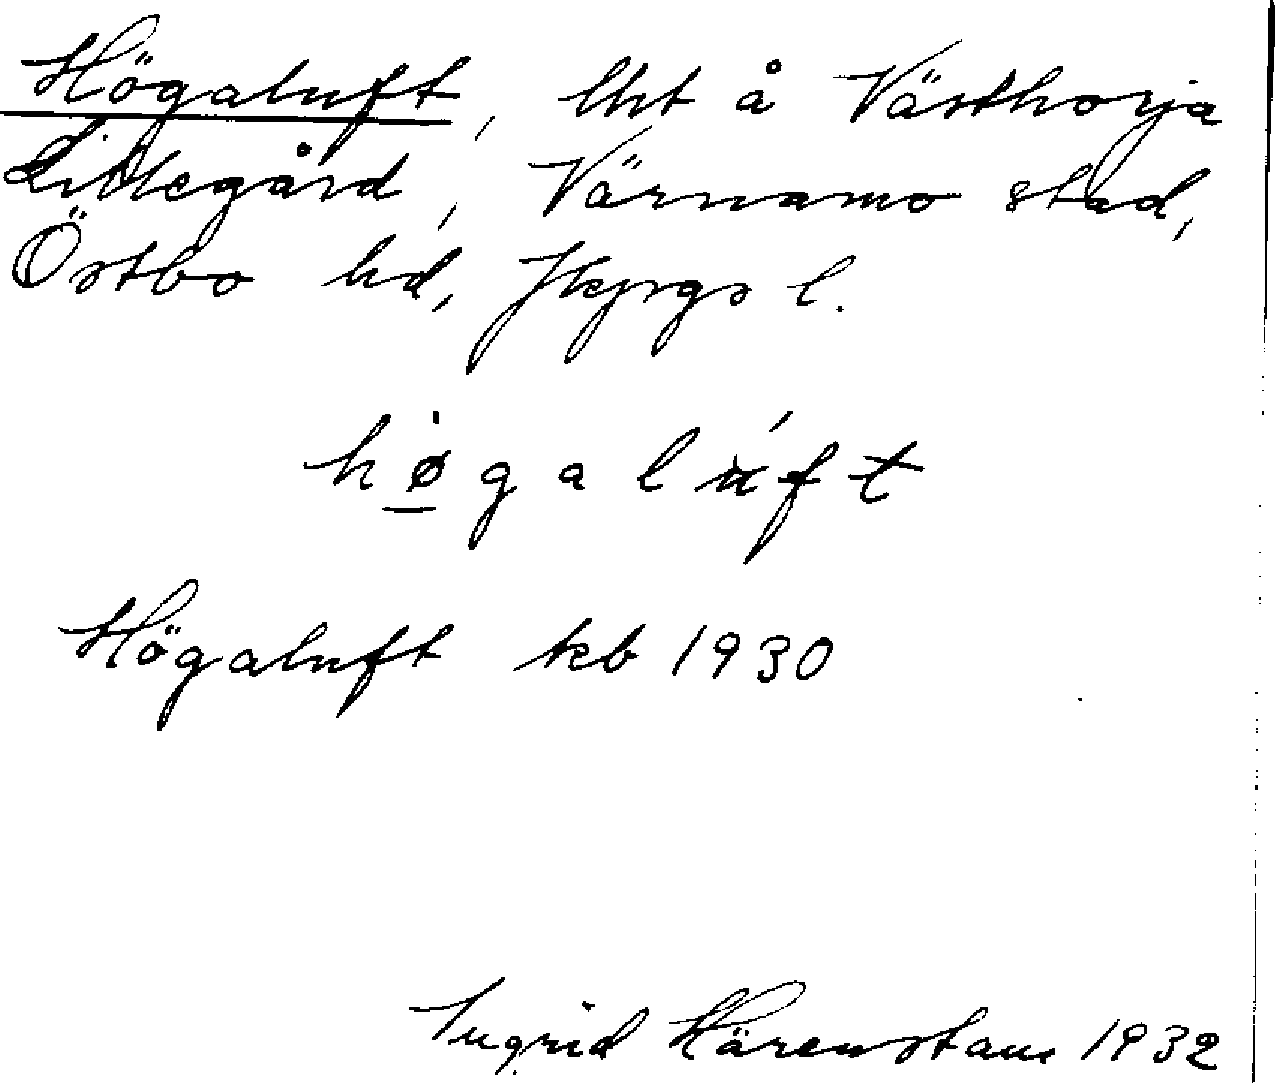 Högaluft, lht å Västhorja
Lillegård, Värnamo stad,
Östbo hd, Jkpgs l.
hø̲galúft
Högaluft kb 1930
Ingrid Härenstam 1932